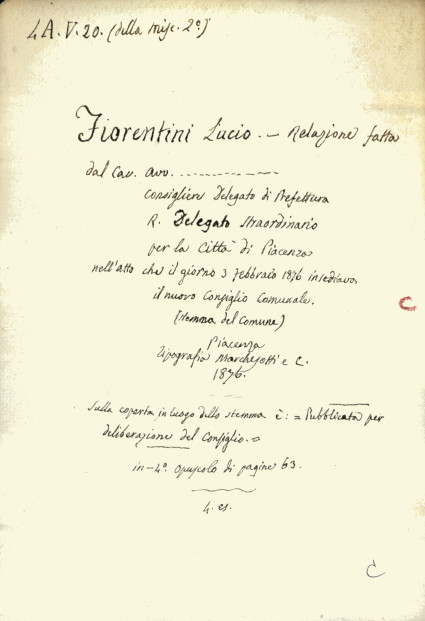 4A.V.20. (della Misc. 2ª)
Fiorentini Lucio. — Relazione fatta
dal Cav. Avv. ..............—
Consigliere Delegato di Prefettura
R. Delegato Straordinario
per la Città di Piacenza
nell'atto che il giorno 3 Febbraio 1876 insediava
il nuovo Consiglio Comunale.
(Stemma del Comune)
Piacenza
Tipografia Marchesotti e C.
1876.
Sulla coperta in luogo dello stemma è: = Pubblicata per
deliberazione del Consiglio. =
in-4°. Opuscolo di pagine 63.
4. es.
C
C